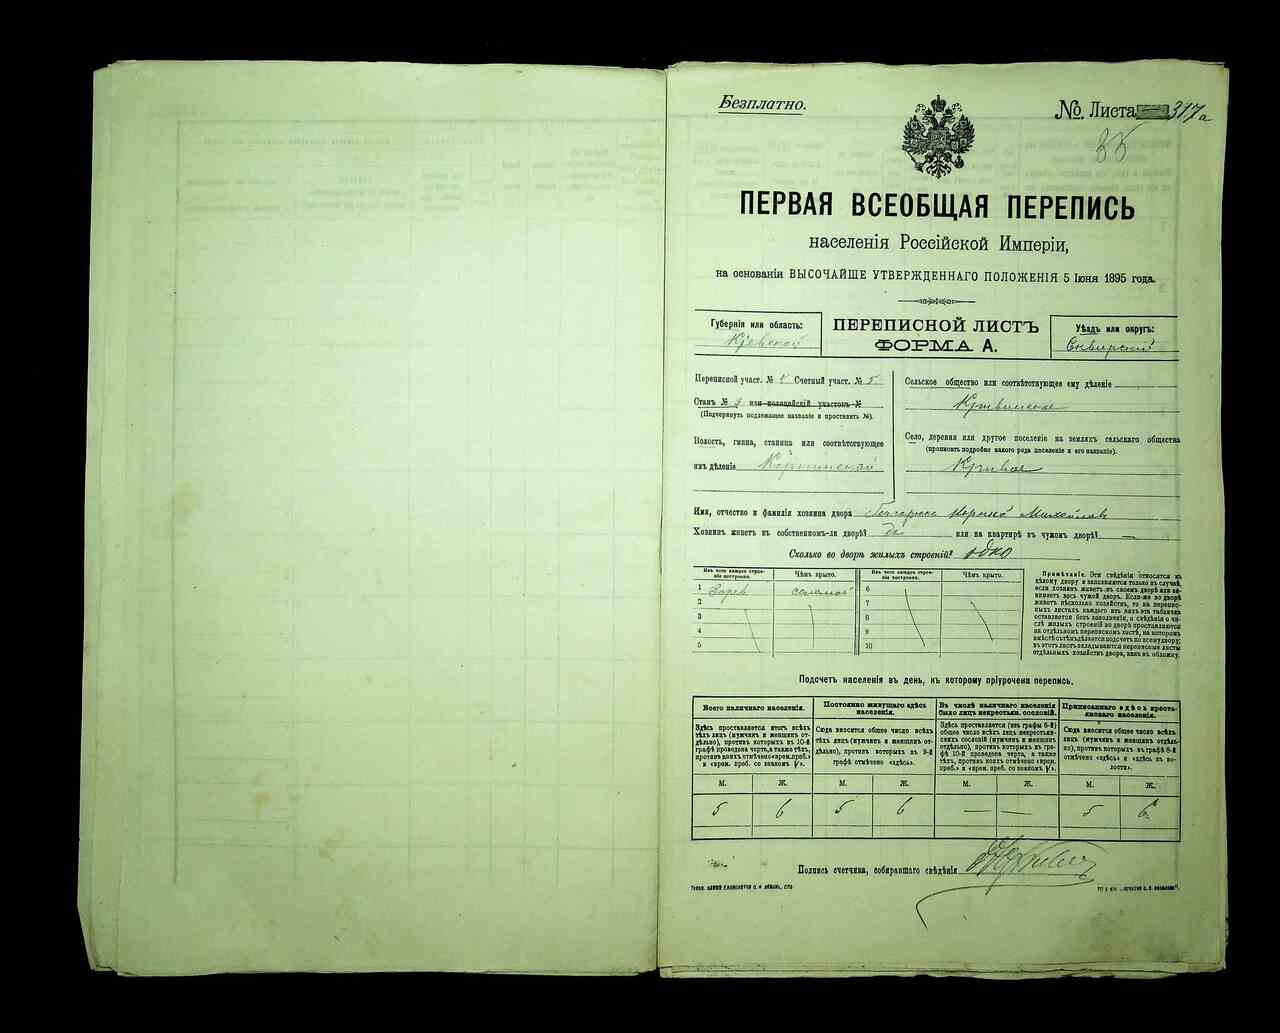 Безплатно.
№ Листа 317а
35
ПЕРВАЯ ВСЕОБЩАЯ ПЕРЕПИСЬ
населенія Россійской Имперіи,
на основаніи ВЫСОЧАЙШЕ УТВЕРЖДЕННАГО ПОЛОЖЕНІЯ 5 Іюня 1895 года.
Губернія или область:
Кіевской
ПЕРЕПИСНОЙ ЛИСТЪ
ФОРМА А.
Уѣздъ или округъ:
Сквирскій
Переписной участ. № Счетный участ. № 5
Станъ № или полицейскій участокъ №
(Подчеркнуть подлежащее названіе и проставить №).
Волость, гмина, станица или соотвѣтствующее
имъ дѣленіе
Сельское общество или соотвѣтствующее ему дѣленіе
Кривинское
Село, деревня или другое поселеніе на земляхъ сельскаго общества
(прописать подробно какого рода поселеніе и его названіе).
Кривое
Имя, отчество и фамилія хозяина двора
Хозяинъ живетъ въ собственномъ-ли дворѣ? да или на квартирѣ въ чужомъ дворѣ? —
Сколько во дворѣ жилыхъ строеній? одно
Изъ чего каждое строеніе построено. Чѣмъ крыто. Изъ чего каждое строеніе построено. Чѣмъ крыто.
1 соломой 6
2 7
3 8
4 9
5 10
Примѣчаніе. Эти свѣдѣнія относятся къ
цѣлому двору и заполняются только въ случаѣ,
если хозяинъ живетъ въ своемъ дворѣ или занимаетъ
весь чужой дворъ. Если-же во дворѣ
живетъ нѣсколько хозяйствъ, то на переписныхъ
листахъ каждаго изъ нихъ эта табличка
оставляется безъ заполненія, а свѣдѣнія о числѣ
жилыхъ строеній во дворѣ проставляются
на отдѣльномъ переписномъ листѣ, на которомъ
вмѣстѣ съ тѣмъ дѣлается подсчетъ по всему двору;
въ этотъ листъ вкладываются переписные листы
отдѣльныхъ хозяйствъ двора, какъ въ обложку.
Подсчетъ населенія въ день, къ которому пріурочена перепись.
Всего наличнаго населенія.
Здѣсь проставляется итогъ всѣхъ
тѣхъ лицъ (мужчинъ и женщинъ отдѣльно),
противъ которыхъ въ 10-й
графѣ проведена черта, а также тѣхъ,
противъ коихъ отмѣчено «врем. преб.»
и «врем. преб. со знакомъ V».
Постоянно живущаго здѣсь населенія.
Сюда вносится общее число всѣхъ
тѣхъ лицъ (мужчинъ и женщинъ отдѣльно),
противъ которыхъ въ 9-й
графѣ отмѣчено «здѣсь».
Въ числѣ наличнаго населенія
было лицъ некрестьян. сословій.
Здѣсь проставляется (изъ графы 6-й)
общее число всѣхъ лицъ некрестьянскихъ
сословій (мужчинъ и женщинъ
отдѣльно), противъ которыхъ въ графѣ
10-й проведена черта, а также
тѣхъ, противъ коихъ отмѣчено «врем.
преб.» и «врем. преб. со знакомъ V».
Приписаннаго здѣсь крестьянскаго населенія.
Сюда вносится общее число всѣхъ
лицъ (мужчинъ и женщинъ отдѣльно),
противъ которыхъ въ графѣ 8-й
отмѣчено «здѣсь» и «здѣсь въ волости».
М. Ж. М. Ж. М. Ж. М. Ж.
5 6 5 6 — — 5 6
Подпись счетчика, собиравшаго свѣдѣнія